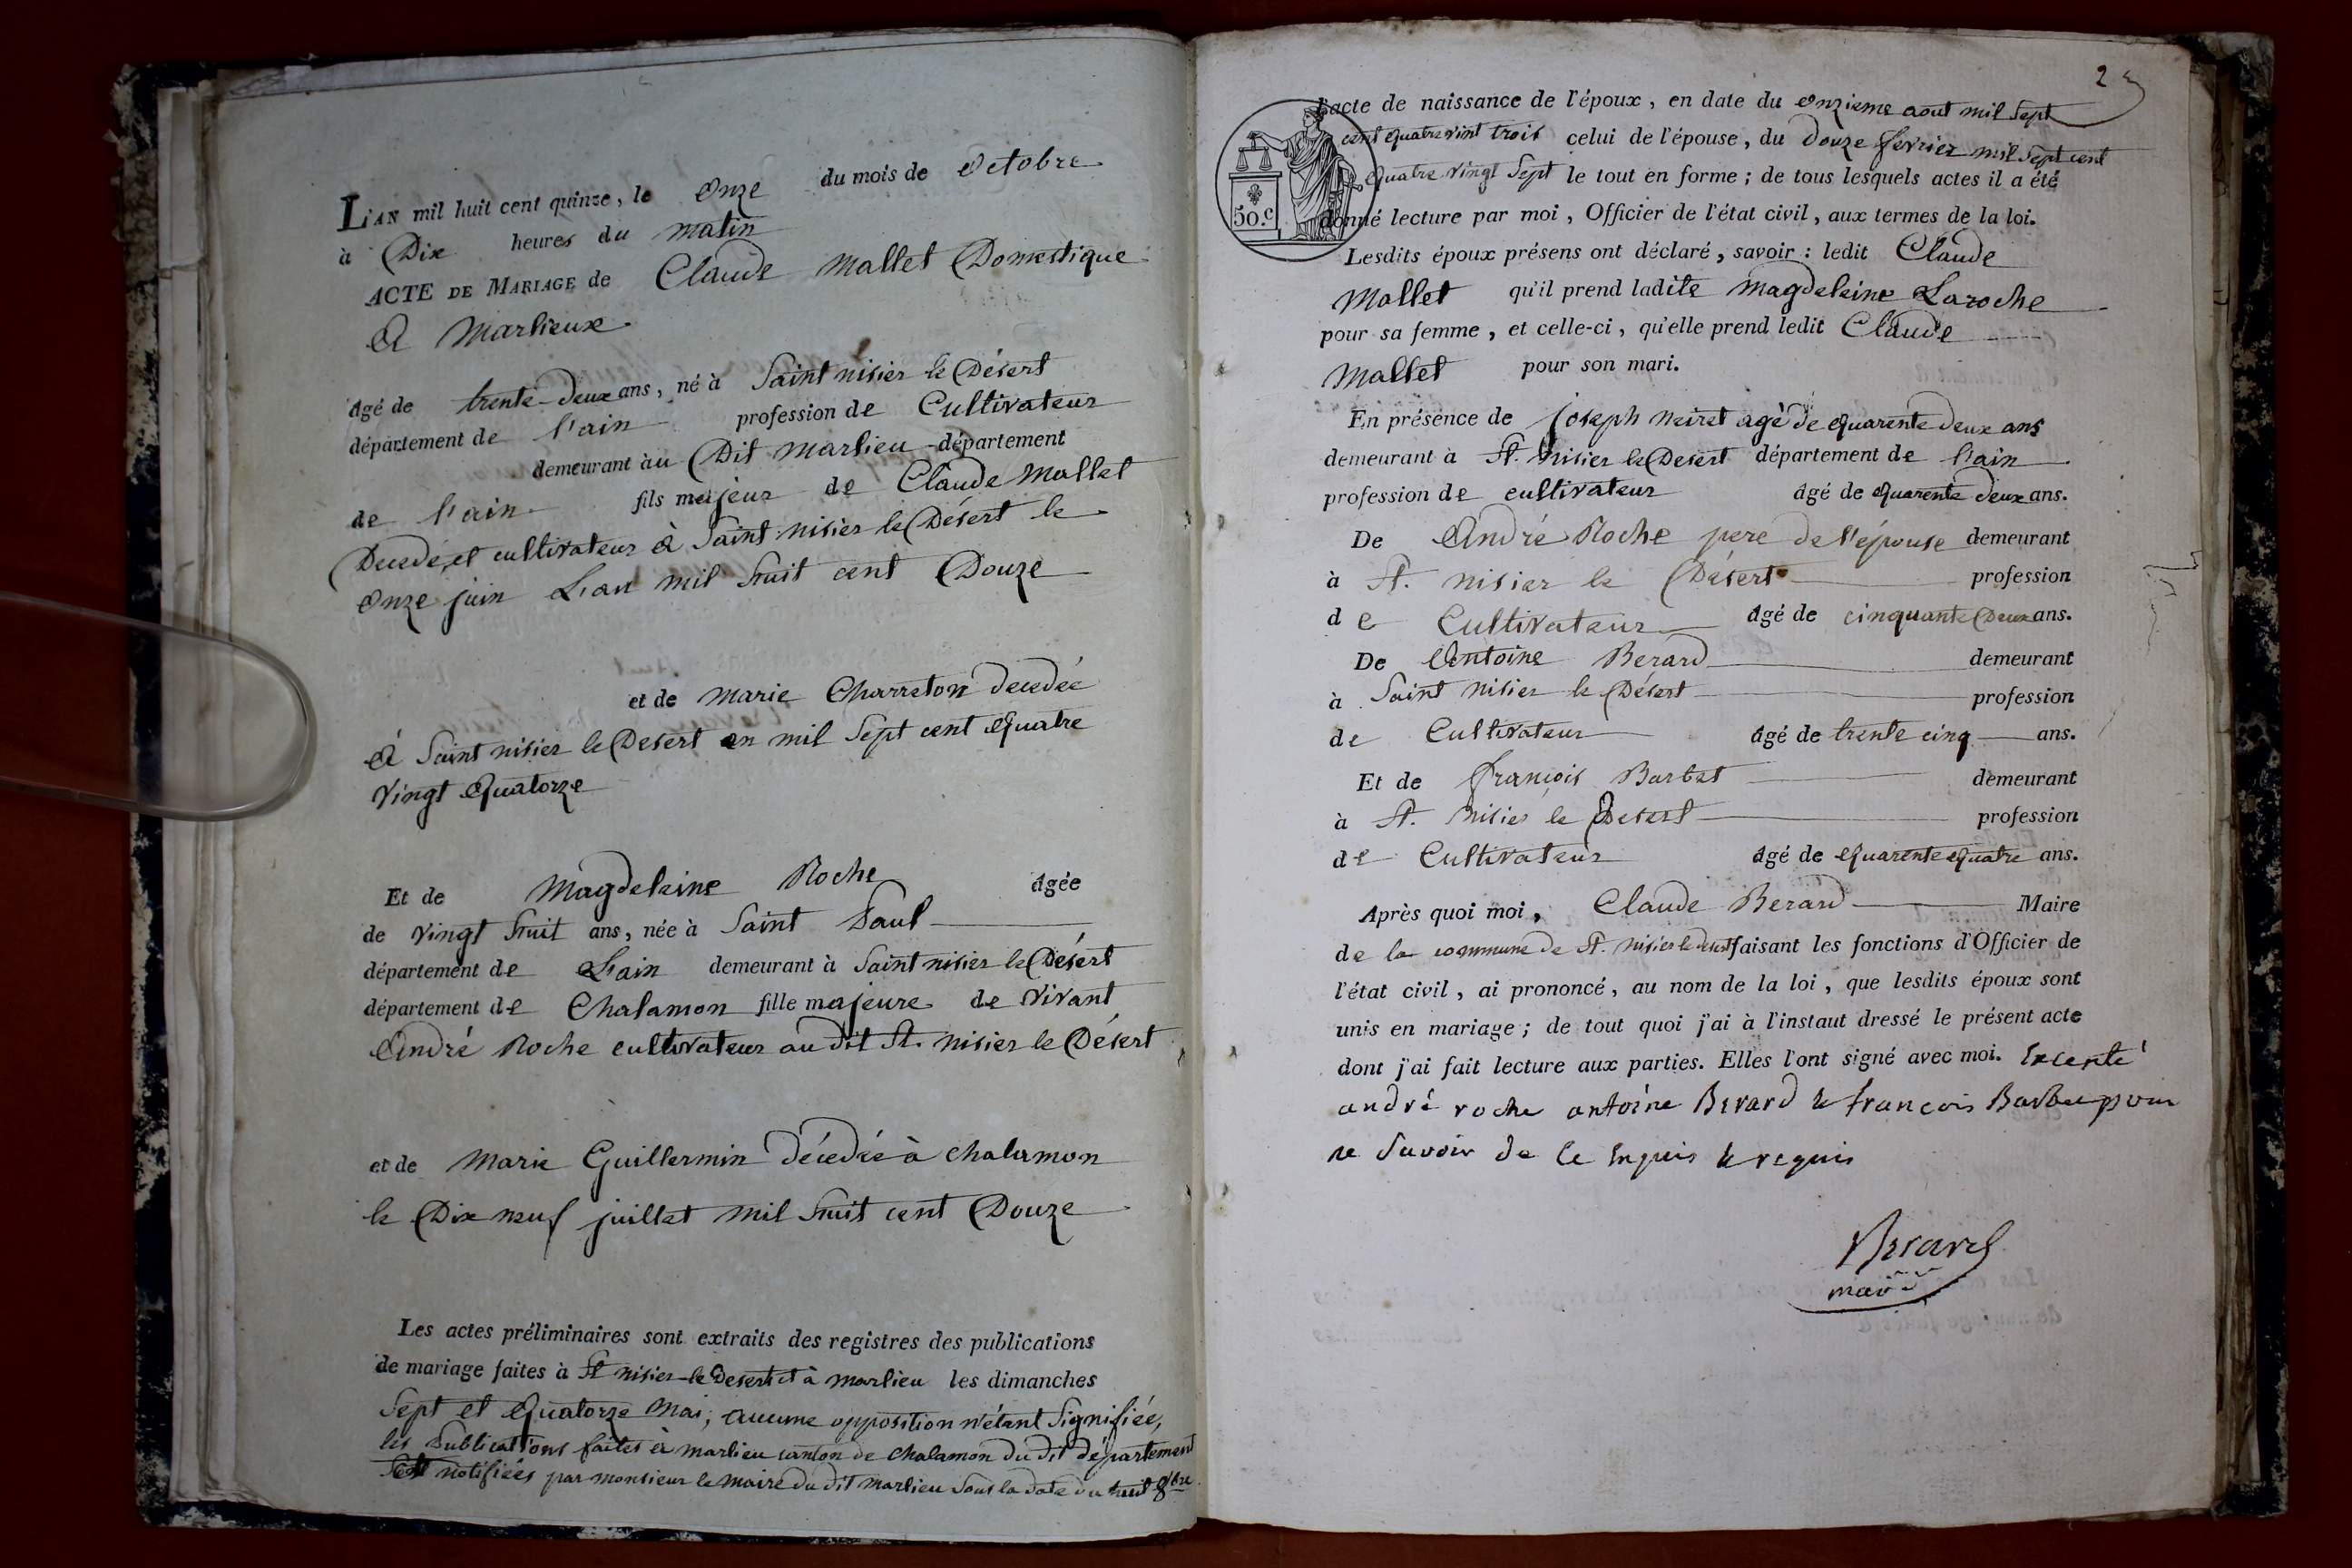 L'AN mil huit cent quinze, le Onze du mois de Octobre
à Dix heures du matin
ACTE DE MARIAGE de Claude Mallet Domestique
A Marlieux
âgé de trente-deux ans, né à Saint nisier le Désert
département de l'ain profession de Cultivateur
demeurant au Dit Marlieu département
de l'ain fils majeur de Claude Mallet
Decedé, et cultivateur à Saint nisier le Désert le
Onze juin L'an mil huit cent Douze
et de Marie Charreton decedée
A Saint nisier le Desert en mil Sept cent Quatre
Vingt Quatorze
Et de Magdeleine Roche âgée
de Vingt huit ans, née à Saint Paul
département de L'ain demeurant à Saint nisier le Désert
département de Chalamon fille majeure de Vivant
André Roche cultivateur au dit St. nisier le Désert
et de Marie Guillermin décedée à chalamon
le Dix neuf juillet mil huit cent Douze
Les actes préliminaires sont extraits des registres des publications
de mariage faites à St nisier le Desert et à marlieu les dimanches
Sept et Quatorze Mai; aucune opposition n'étant Signifiée,
les Publications faites à marlieu canton de chalamon du dit département
Sont notifiées par monsieur le Maire du dit marlieu Sous la date du huit 8bre
2
l'acte de naissance de l'époux, en date du onzieme aout mil Sept
cent quatre vint trois celui de l'épouse, du douze fevrier mil Sept cent
quatre Vingt Sept le tout en forme; de tous lesquels actes il a été
donné lecture par moi, Officier de l'état civil, aux termes de la loi.
50.c
Lesdits époux présens ont déclaré, savoir: ledit Claude
Mallet qu'il prend ladite Magdeleine Laroche
pour sa femme, et celle-ci, qu'elle prend ledit Claude
Mallet pour son mari.
En présence de joseph neiret agé de quarente deux ans
demeurant à St. Nisier le Desert département de l'ain
profession de cultivateur âgé de quarente deux ans.
De André Roche pere de l'épouse demeurant
à St. nisier le Désert profession
de Cultivateur âgé de cinquante Deux ans.
De Antoine Berard demeurant
à Saint Nisier le Désert profession
de Cultivateur âgé de trente cinq ans.
Et de françois Barbet demeurant
à St. Nisier le Desert profession
de Cultivateur âgé de quarente quatre ans.
Après quoi moi, Claude Berard Maire
de la commune de St. nisier le desert faisant les fonctions d'Officier de
l'état civil, ai prononcé, au nom de la loi, que lesdits époux sont
unis en mariage; de tout quoi j'ai à l'instaut dressé le présent acte
dont j'ai fait lecture aux parties. Elles l'ont signé avec moi. Excepté
andré roche antoine Berard & francois Barbet pour
ne Savoir de ce Enquis & requis
Berard
maire